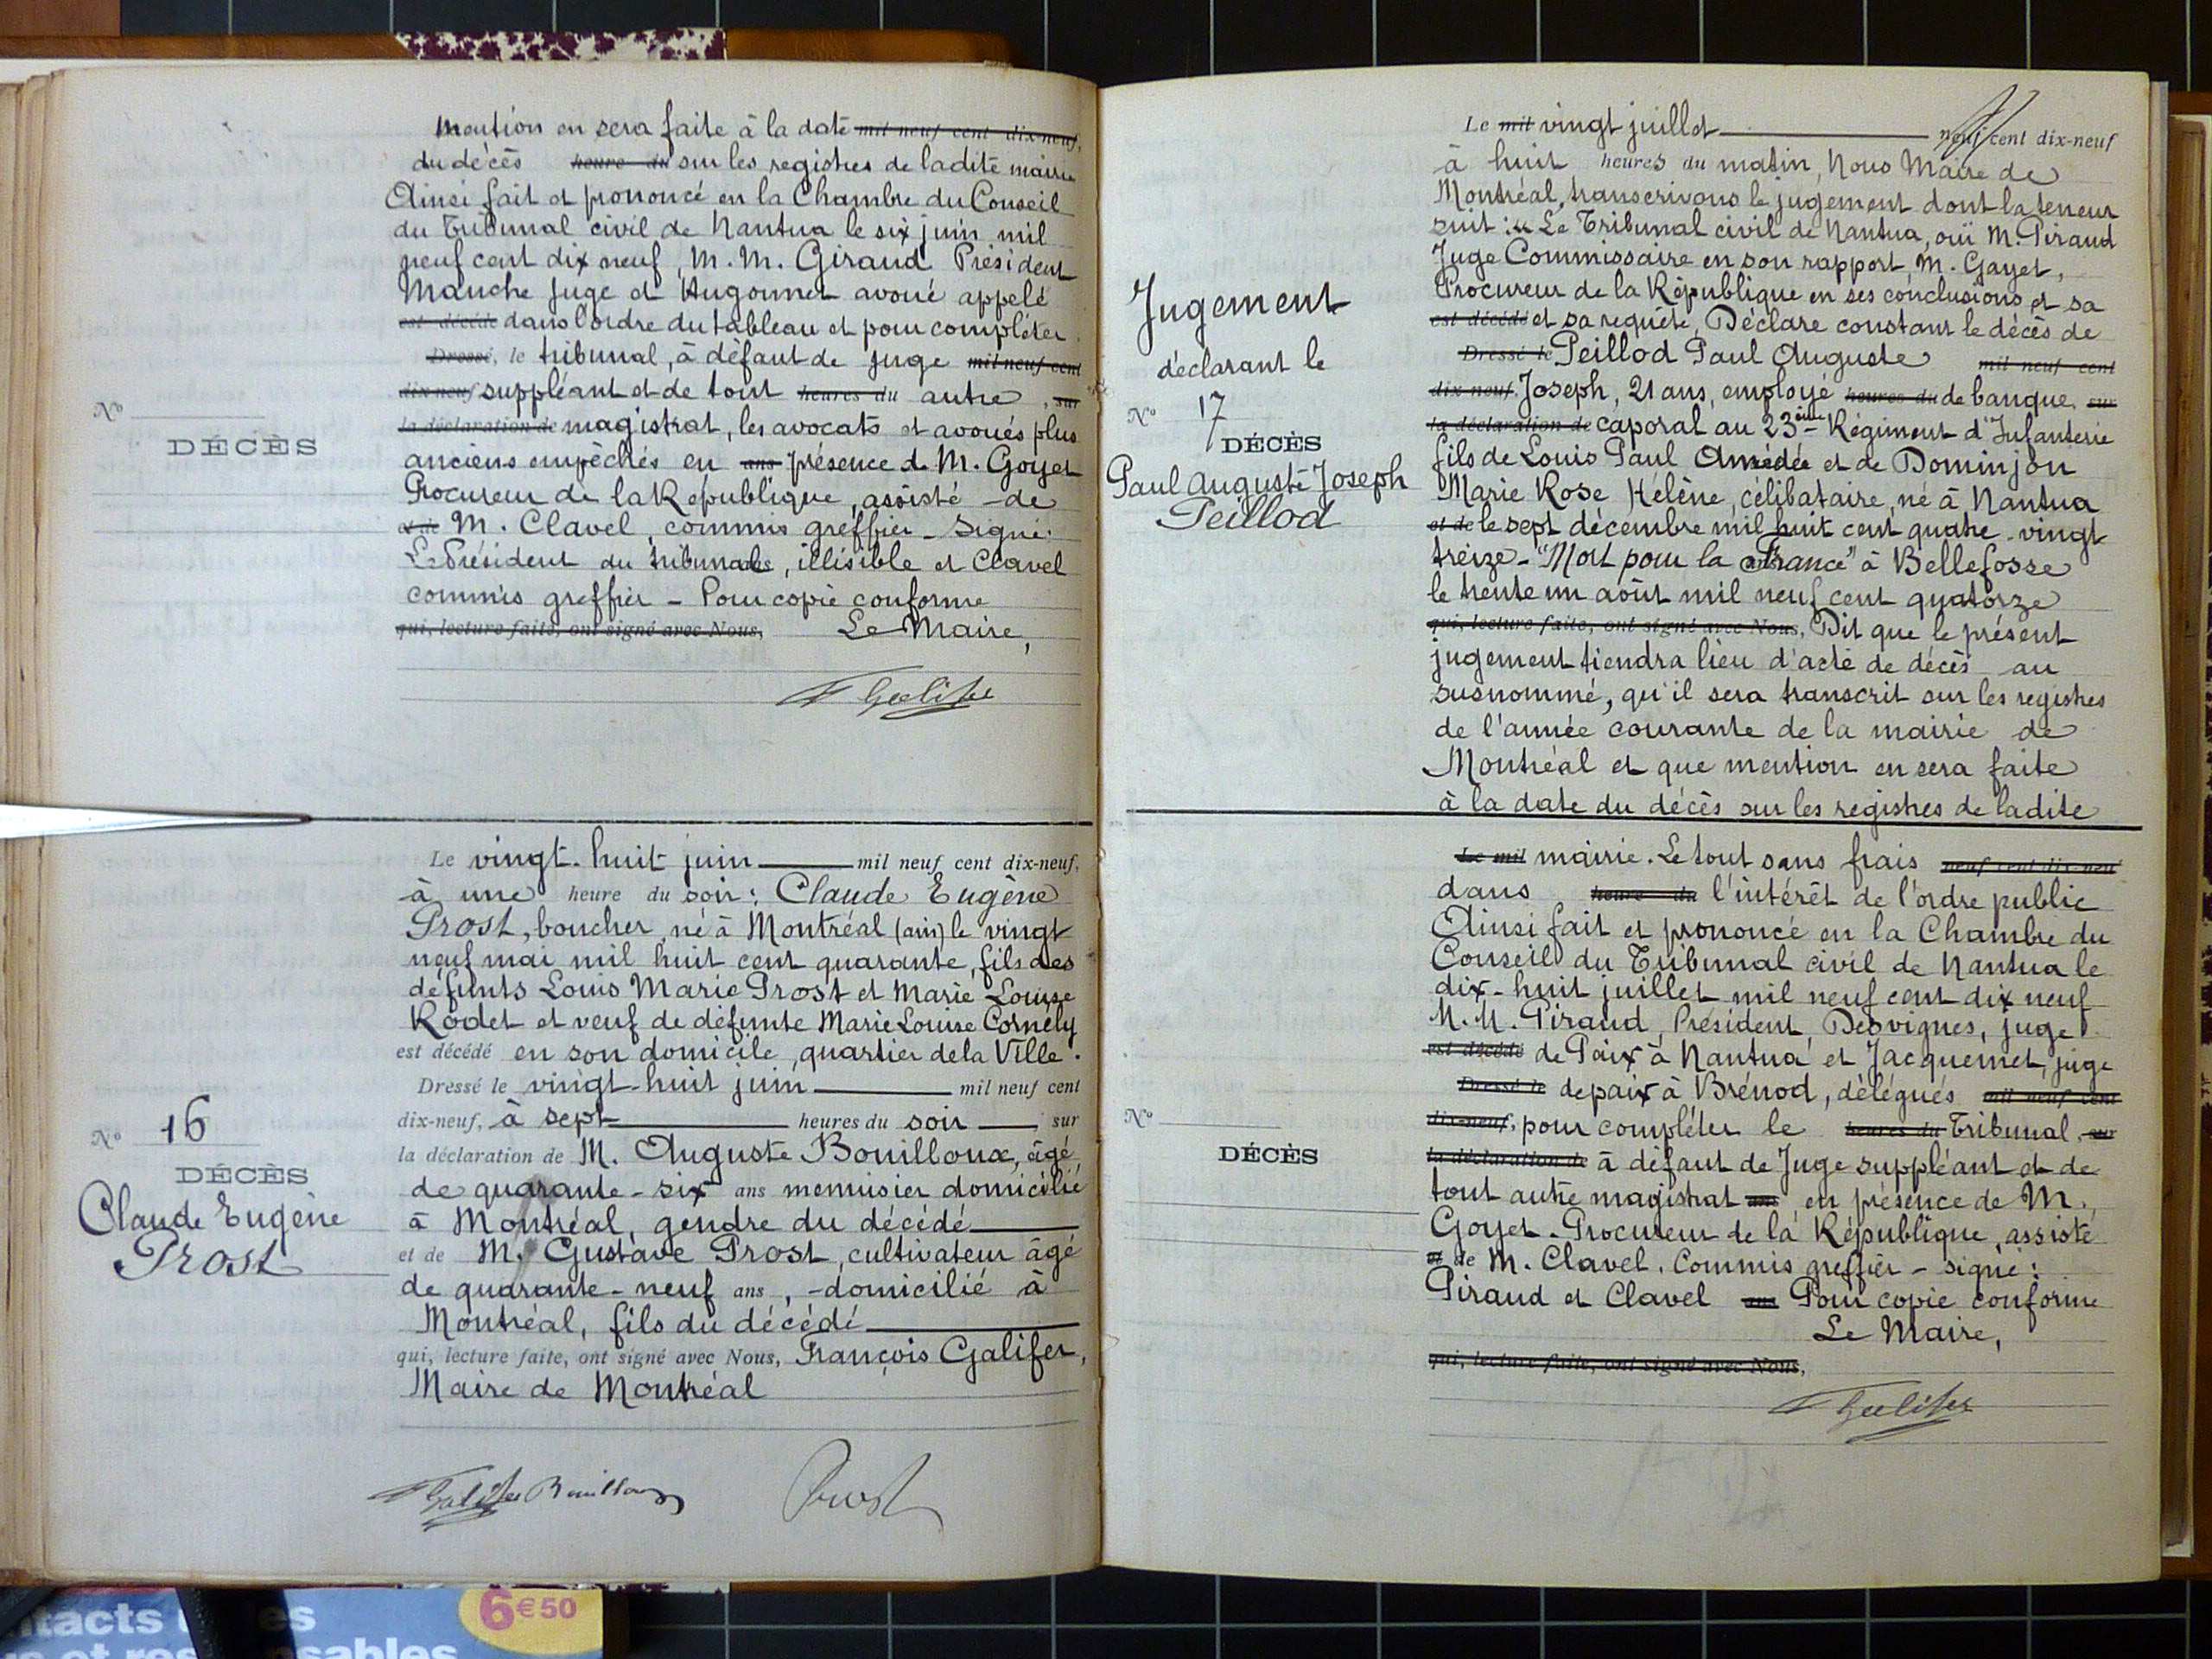 Mention en sera faite à la date mil neuf cent dix-neuf,
du décès heure du sur les registres de ladite mairie
Ainsi fait et prononcé en la Chambre du Conseil
du Tribunal civil de Nantua le six juin mil
neuf cent dix neuf, M. M. Giraud Président
Manche juge et Hugonnet avoué appelé
est décédé dans l'ordre du tableau et pour compléter
Dressé, le tribunal, à défaut de juge mil neuf cent
dix-neuf suppléant et de tout heures du autre, sur
la déclaration de magistrat, les avocats et avoués plus
anciens empêchés en ans présence de M. Goyet
Procureur de la République, assisté de
et de M. Clavel, commis greffier - Signé:
Le Président du tribunal, illisible et Clavel
commis greffier - Pour copie conforme
qui, lecture faite, ont signé avec Nous, Le Maire,
F Galifer
N°
DÉCÈS
Le vingt-huit juin mil neuf cent dix-neuf,
à une heure du soir: Claude Eugène
Prost, boucher, né à Montréal (ain) le vingt
neuf mai mil huit cent quarante, fils des
défunts Louis Marie Prost et Marie Louise
Rodet et veuf de défunte Marie Louise Cornély
est décédé en son domicile, quartier de la Ville.
Dressé le vingt-huit juin mil neuf cent
dix-neuf, à sept heures du soir, sur
la déclaration de M. Auguste Bouilloux, âgé
de quarante-six ans menuisier domicilié
à Montréal, gendre du décédé
et de M. Gustave Prost, cultivateur âgé
de quarante-neuf ans, -domicilié à
Montréal, fils du décédé
qui, lecture faite, ont signé avec Nous, François Galifer,
Maire de Montréal
N° 16
DÉCÈS
Claude Eugène
Prost
F Galifer Bouilloux Prost
Jugement
déclarant le
N° 17
DÉCÈS
Paul Auguste Joseph
Peillod
Le mil vingt juillet neuf cent dix-neuf
à huit heures du matin, Nous Maire de
Montréal, transcrivons le jugement dont la teneur
suit : « Le Tribunal civil de Nantua, ouï M. Piraud
Juge Commissaire en son rapport, M. Goyet,
Procureur de la République en ses conclusions, et sa
est décédé et sa requête, Déclare constant le décès de
Dressé le Peillod Paul Auguste mil neuf cent
dix-neuf, Joseph, 21 ans, employé heures du de banque, sur
la déclaration de caporal au 23ème Régiment d'Infanterie
fils de Louis Paul Amédée et de Dominjon
Marie Rose Hélène, célibataire, né à Nantua
et de le sept décembre mil huit cent quatre-vingt
treize - "Mort pour la France" à Bellefosse
le trente un août mil neuf cent quatorze
qui, lecture faite, ont signé avec Nous, Dit que le présent
jugement tiendra lieu d'acte de décès au
susnommé, qu'il sera transcrit sur les registres
de l'année courante de la mairie de
Montréal et que mention en sera faite
à la date du décès sur les registres de ladite
Le mil mairie. Le tout sans frais neuf cent dix-neuf
dans heure du l'intérêt de l'ordre public
Ainsi fait et prononcé en la Chambre du
Conseil du Tribunal civil de Nantua le
dix-huit juillet mil neuf cent dix neuf
M. M. Piraud, Président, Desvignes, juge
est décédé de Paix à Nantua et Jacquemet, juge
Dressé le de paix à Brénod, délégués mil neuf cent
dix-neuf, pour compléter le heures du Tribunal, sur
la déclaration de à défaut de Juge suppléant et de
tout autre magistrat ans, en présence de M.
Goyet. Procureur de la République, assisté
et de M. Clavel. Commis greffier - signé:
Piraud et Clavel ans Pour copie conforme
Le Maire,
qui, lecture faite, ont signé avec Nous,
F Galifer
N°
DÉCÈS
6€50